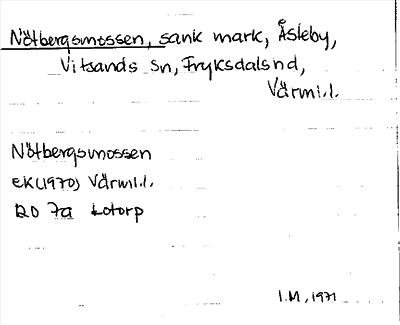 Nötbergsmossen, sank mark, Åsleby,
Vitsands sn, Fryksdalshd,
Värml.l.
Nötbergsmossen
EK(1970) Värml.l.
12D 7a Lotorp
I.M, 1971